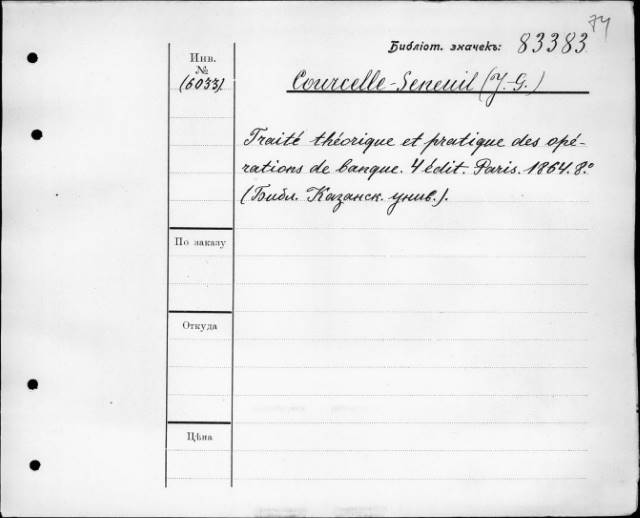 74
Библіот. значекъ: 83383
Инв.
№
(6033)
Courcelle-Seneuil (J.-G.)
Traité théorique et pratique des opé-
rations de banque. 4 édit. Paris. 1864. 8.°
(Библ. Казанск. унив.).
По заказу
Откуда
Цѣна